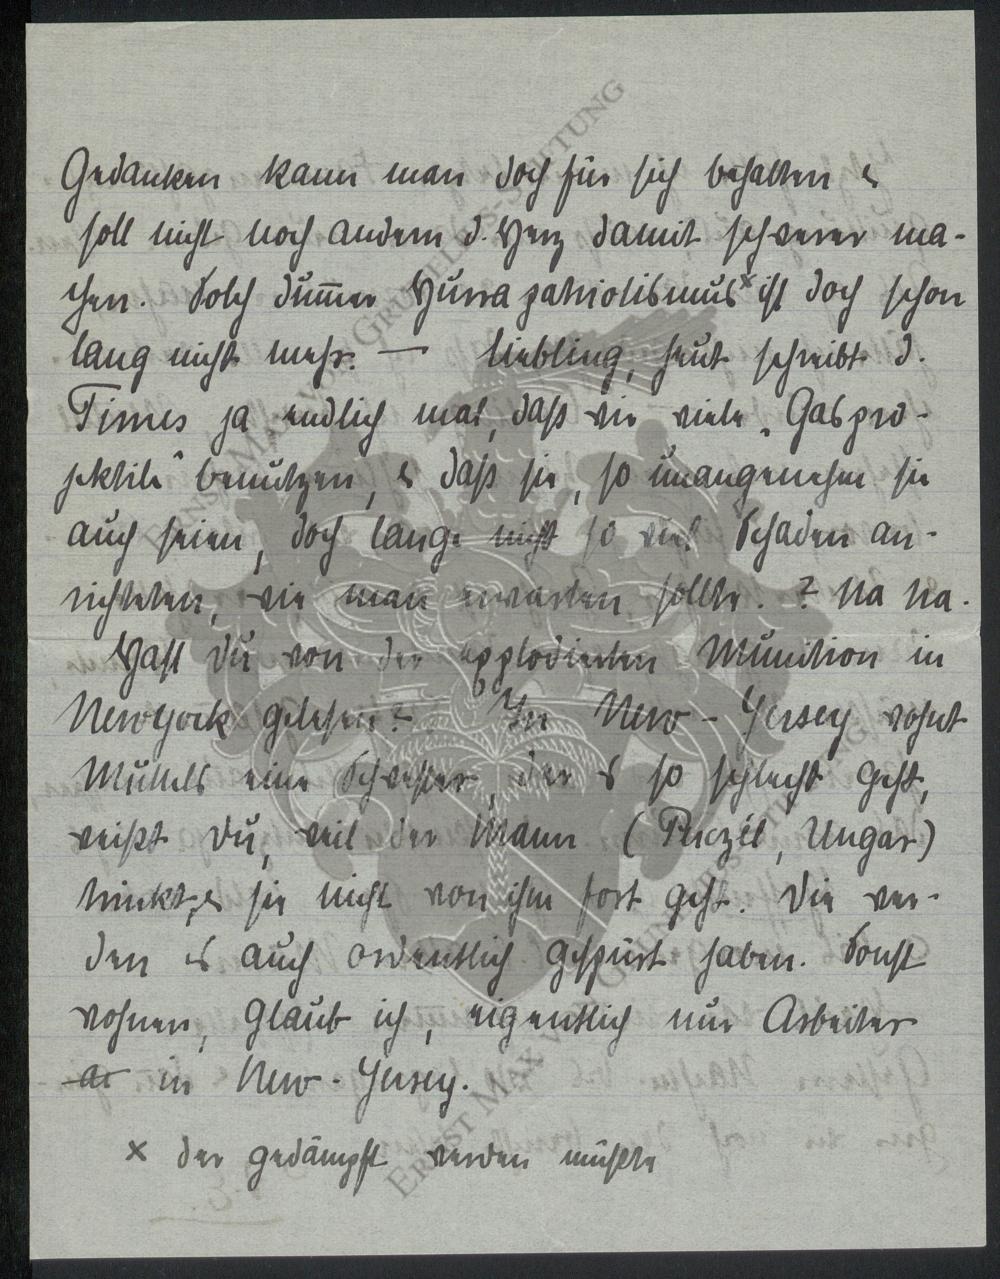 Gedanken kann man doch für sich behalten &
soll nicht noch andern d. Herz damit schwerer ma-
chen. Solch dummer Hurrapatriotismus x ist doch schon
lang nicht mehr. — Liebling, heut schreibt d.
Times ja endlich mal, daß wir viele „Gaspro-
jektile“ benutzen, & daß sie, so unangenehm sie
auch seien, doch lange nicht so viel Schaden an-
richteten, wie man erwarten sollte. ? Na na.
Hast Du von der explodierten Munition in
NewYork gelesen? In New-Jersey wohnt
eine Schwester, der es so schlecht geht,
weißt Du, weil der Mann (Ungar)
trinkt, & sie nicht von ihm fort geht. Die wer-
den es auch ordentlich gespürt haben. Sonst
wohnen, glaub ich, eigentlich nur Arbeiter
in New-Jersey.
x der gedämpft werden müßte
ERNST MAX VON GRUNELIUS-STIFTUNG
ERNST MAX VON GRUNELIUS-STIFTUNG